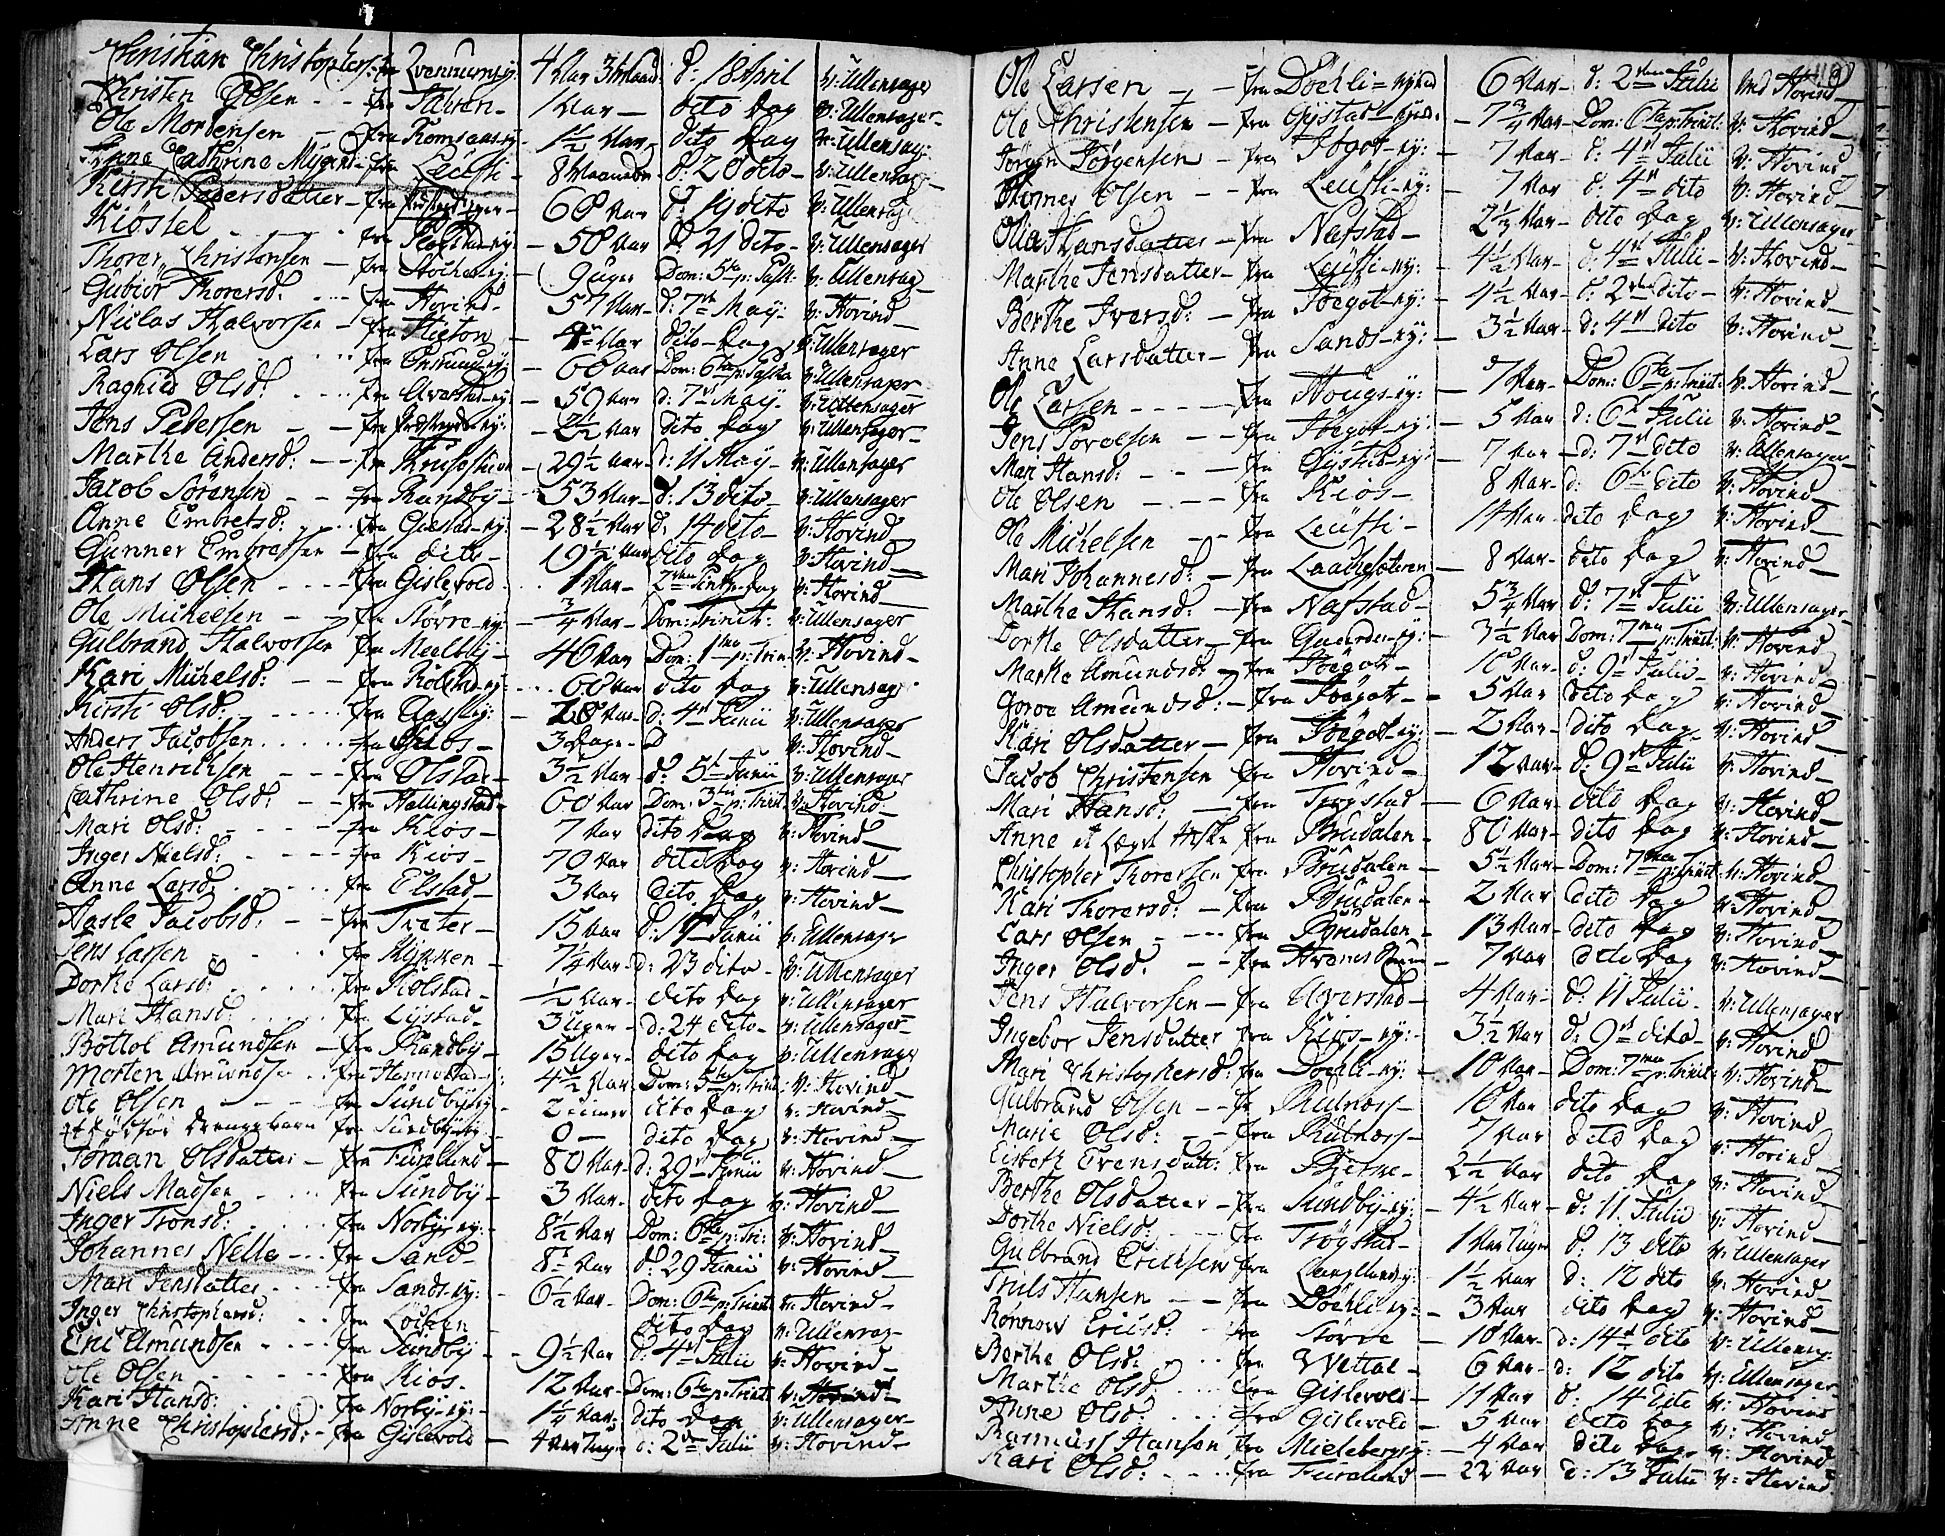 Christian Christophers: fra Qvennum-ey: 4 Aar 3 Maan: d: 18 April v: Ullensager
Christen Olsen - - fra 1 Aar - dito Dag v: Ullensager -
Ole Mortensen - fra Romsaas-ey 1½ Aar - dito Dag v: Ullensag:
Anne Cathrine - fra Leüssi - 8 Maaneder d: 20 dito - v: Ullensag -
Kirsti Pedersdatter - fra 68 Aar d: 19 dito v: Ullensag
Kiöstel - fra - 50 Aar d: 21 dito - v: Ullensager
Thorer Christensen - fra 9 uger Dom: 5ta p: Pask: v: Ullensag -
Gubiör Thorersd: - fra Hovind - 57 Aar - d: 7de May - v: Hovind -
Niclas Halvorsen - fra Aar dito Dag v: Ullensager
Lars Olsen - fra - 60 aar Dom: 6ta p: Paska v: Ullensager
Ragnild Olsd: - fra - 59 aar d: 7de May - v: Ullensager
Jens Pedersen - - fra - 2½ Aar dito Dag v: Ullensager -
Marthe Andersd: - fra - 29½ aar - d: 11 May - v: Ullensager
Jacob Sörensen - - fra Randby - 53 Aar - d: 13 dito - v: Ullensager
Anne Embretsd: - fra - 28½ Aar d: 14 dito - v: Hovind -
Gunner Embretsen - fra dito - 19½ Aar dito Dag v: Hovind -
Hans Olsen - - - fra Gislevold - 1 Aar - 2den Pintsedag v: Hovind -
Ole Michelsen - - fra Större-ey: - ¾ Aar - Dom: Trinit: v: Ullensager
Gulbrand Halvorsen fra Meelbye - 46 Aar Dom: 1ma p: Trin: v: Hovind -
Kari Michelsd: - - fra 60 Aar dito Dag v: Ullensag
Kirsti Olsd: - fra - 28 Aar - d: 4de Junii v: Ullensager
Anders Jacobsen - fra Kios - 3 Dage - D v: Hovind -
Ole Henrichsen - - fra Olstad - 3½ Aar - d: 5te Junii v: Ullensager
Cathrine Olsd: - fra Hellingstad - 60 Aar Dom: 3tii p: Trinit: v: Hovind -
Mari Olsd: - fra Kios - 7 Aar dito Dag v: Hovind
Inger Nielsd: - fra Kios - 70 Aar dito Dag v: Hovind -
Anne Larsd: - fra Elstad - 3 Aar dito Dag v: Hovind -
Aasle Jacobsd: - - fra Tveter - 15 Aar d: 19de Junii v: Ullensager
Jens Larsen - fra 7¼ Aar - d: 23 dito - v: Ullensager
Dorthe Larsd: - fra Rolstad - ½ Aar - dito Dag v: Ullensager
Mari Hansd: - fra Lystad - 3 uger - d: 24 dito - v: Ullensager -
Bottol Amundsen - fra Randby - 15 Uger - dito Dag v: Ullensager
Morten Amundsen - fra 4½ Aar Dom: 5ta p: Trinit: v: Hovind
Ole Olsen - fra Sundby-ey 2 timer dito Dag v: Hovind -
et Dödfödt Drengebarn fra Sundby-ey 0 - dito Dag v: Hovind -
Joraan Olsdatter - fra Furulund - 80 Aar - d: 29de Junii v: Hovind -
Niels Madsen - fra Sundby - 3 Aar - dito Dag v: Hovind -
Inger Tronsd: - fra Norby-ey: 8½ Aar Dom: 6ta p: Tri: v: Hovind
Johannes Nelle - fra Sand - 8 Aar d: 29 Junii v: Hovind -
Mari Jensdatter - fra Sands-ey: 6½ Aar - Dom: 6ta p: Trinit: v: Hovind -
Inger Christophersd: - fra dito Dag v: Ullensag -
Eric Amundsen - fra Sundby - - 9½ Aar d: 4de Julii v: Hovind -
Ole Olsen - fra Kios - 12 Aar - Dom: 6ta p: Trinit: v: Hovind -
Kari Hansd: - fra Norby-ey: - 1¼ Aar - dito Dag v: Ullensager -
Anne Christophersd: - fra Gislevold - 4 Aar d: 2den Julii v: Hovind -
Ole Larsen - - fra Döehli - 6 Aar - d: 2den Julii ved Hovind
Ole Christensen - fra Gystad-eyed: - 7¾ Aar - Dom: 6ta p: Trinit: v: Hovind -
Jörgen Jörgensen - fra Jöegot-ey: - 7 Aar d: 4de Julii v: Hovind
Hannes Olsen - - fra Leüssi-ey: - 7 Aar d: 4de dito v: Hovind -
Olia Hansdatter - fra Nafstad - 2½ Aar - dito Dag v: Ullensager -
Marthe Jensdatter - fra Leüssi-ey: - 4½ Aar - d: 4de Julii - v: Hovind -
Berthe Iversd: - fra Jöegot-ey: - 4½ Aar - d: 2den dito - v: Hovind -
Anne Larsdatter - fra Sands-ey: - 3½ Aar - d: 4de dito v: Hovind -
Ole Larsen - - - - fra Hougs-ey: - 7 Aar - Dom: 6ta p: Trinit: v: Hovind -
Jens Povelsen - - fra Jöegot-ey: - 5 Aar d: 6te Julii v: Hovind -
Mari Hansd: - - fra Gystad-ey: - 7 Aar - d: 7de dito v: Ullensager -
Ole Olsen - - - fra Kios - 8 Aar - d: 6te dito v: Hovind -
Ole Michelsen - - fra Leüssi - 14 Aar - dito Dag v: Hovind -
Mari Johannesd: - fra 8 Aar - dito Dag v: Hovind -
Marthe Hansd: - fra Nafstad - 5¾ Aar d: 7de Julii v: Ullensager -
Dorthe Olsdatter - fra Gaarder-ey: - 3½ Aar Dom: 7ma p: Trinit: v: Hovind
Marthe Amundsd: - fra Jöegot - 10 Aar - d: 9de Julii - v: Hovind -
Goroe Amundsd: - fra Jöegot - - 5 Aar dito Dag v: Hovind -
Kari Olsdatter - fra Jöegot-ey: - 2 Aar - dito Dag - v: Hovind -
Jacob Christensen fra Hovind - 12 Aar - d: 9de Julii v: Hovind -
Mari Hansd: - fra Trögstad - 6 Aar - dito Dag v: Hovind -
Anne et Lægds fra Brudalen - 80 Aar - dito Dag v: Hovind -
Christopher Thorersen fra Brudalen - 5½ Aar - Dom: 7ma p: Trinit: v: Hovind -
Kari Thorersd: - fra Brudalen - 2 Aar dito Dag v: Hovind -
Lars Olsen - - - fra Brudalen - 13 Aar - dito Dag v: Hovind -
Inger Olsd: - - fra - 7 Aar dito Dag v: Hovind -
Jens Halvorsen - fra Alverstad - 4 Aar - d: 11 Julii - v: Ullensager
Ingebor Jensdatter fra Kios-ey: - 3½ Aar d: 9de dito - v: Hovind -
Mari Christophersd: fra Döehli-ey: - 10 Aar - Dom: 7ma p: Trinit: v: Hovind -
Gulbrand Olsen - - fra Rulnæss - 10 Aar dito Dag v: Hovind
Marie Olsd: - - fra Rulnæss - 7 Aar dito Dag v: Hovind -
Eisbeth Evensdatt: fra Bierke - 2½ Aar dito Dag v: Hovind
Berthe Olsdatter - fra Sundby-ey: - 4½ Aar - d: 11 Julii v: Hovind -
Dorthe Nielsd: - fra Trögstad - 1 Aar 7 uger d: 13 dito v: Ullensager
Gulbrand Erichsen fra 1½ Aar d: 12 dito v: Hovind -
Truls Hansen - - fra Döehli-ey: - 3 Aar dito Dag v: Hovind -
Rönnow Ericsd: - fra Större - 10 Aar - d: 14de dito v: Ullensag:
Berthe Olsd: - fra Wettal - 6 Aar - d: 12 dito v: Ullensager -
Marthe Olsd: - fra Gislevold - 11 Aar d: 14 dito v: Hovind
Anne Olsd: - fra Gislevold - 5 Aar dito Dag v: Hovind -
Rasmuss Hansen fra Mielebergs-ey: - 4 Aar dito Dag - v: Hovind -
Kari Olsd: - fra Furulund - 22 Aar d: 13 Julii v: Hovind